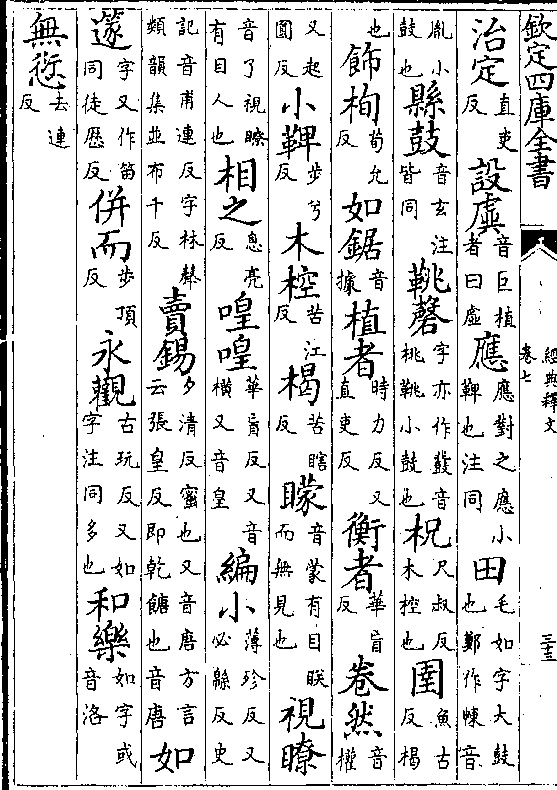 欽定四庫全書
經典釋文
卷七
三十三
治定直吏反設虡音巨植者曰虡應應對之應小鞞也注同田毛如字大鼓也鄭作朄音
胤小鼓也縣鼓音玄注皆同鞉磬字亦作鼗音桃鞉小鼓也柷尺叔反木椌也圉魚古反楬
也飾栒荀允反如鋸音據植者時力反又直吏反衡者華盲反卷然音權
又起圓反小鞞步兮反木椌苦江反楬苦瞎反矇音蒙有目眹而無見也視瞭
音了視瞭有目人也相之息亮反喤喤華盲反又音橫又音皇編小薄殄反又必緜反史
記音甫連反字林聲類韻集並布千反賣錫夕清反蜜也又音唐方言云張皇反即乾餹也音唐如
篴字又作笛同徒歷反併而步頂反永觀古玩反又如字注同多也和樂如字或音洛
無愆去連反